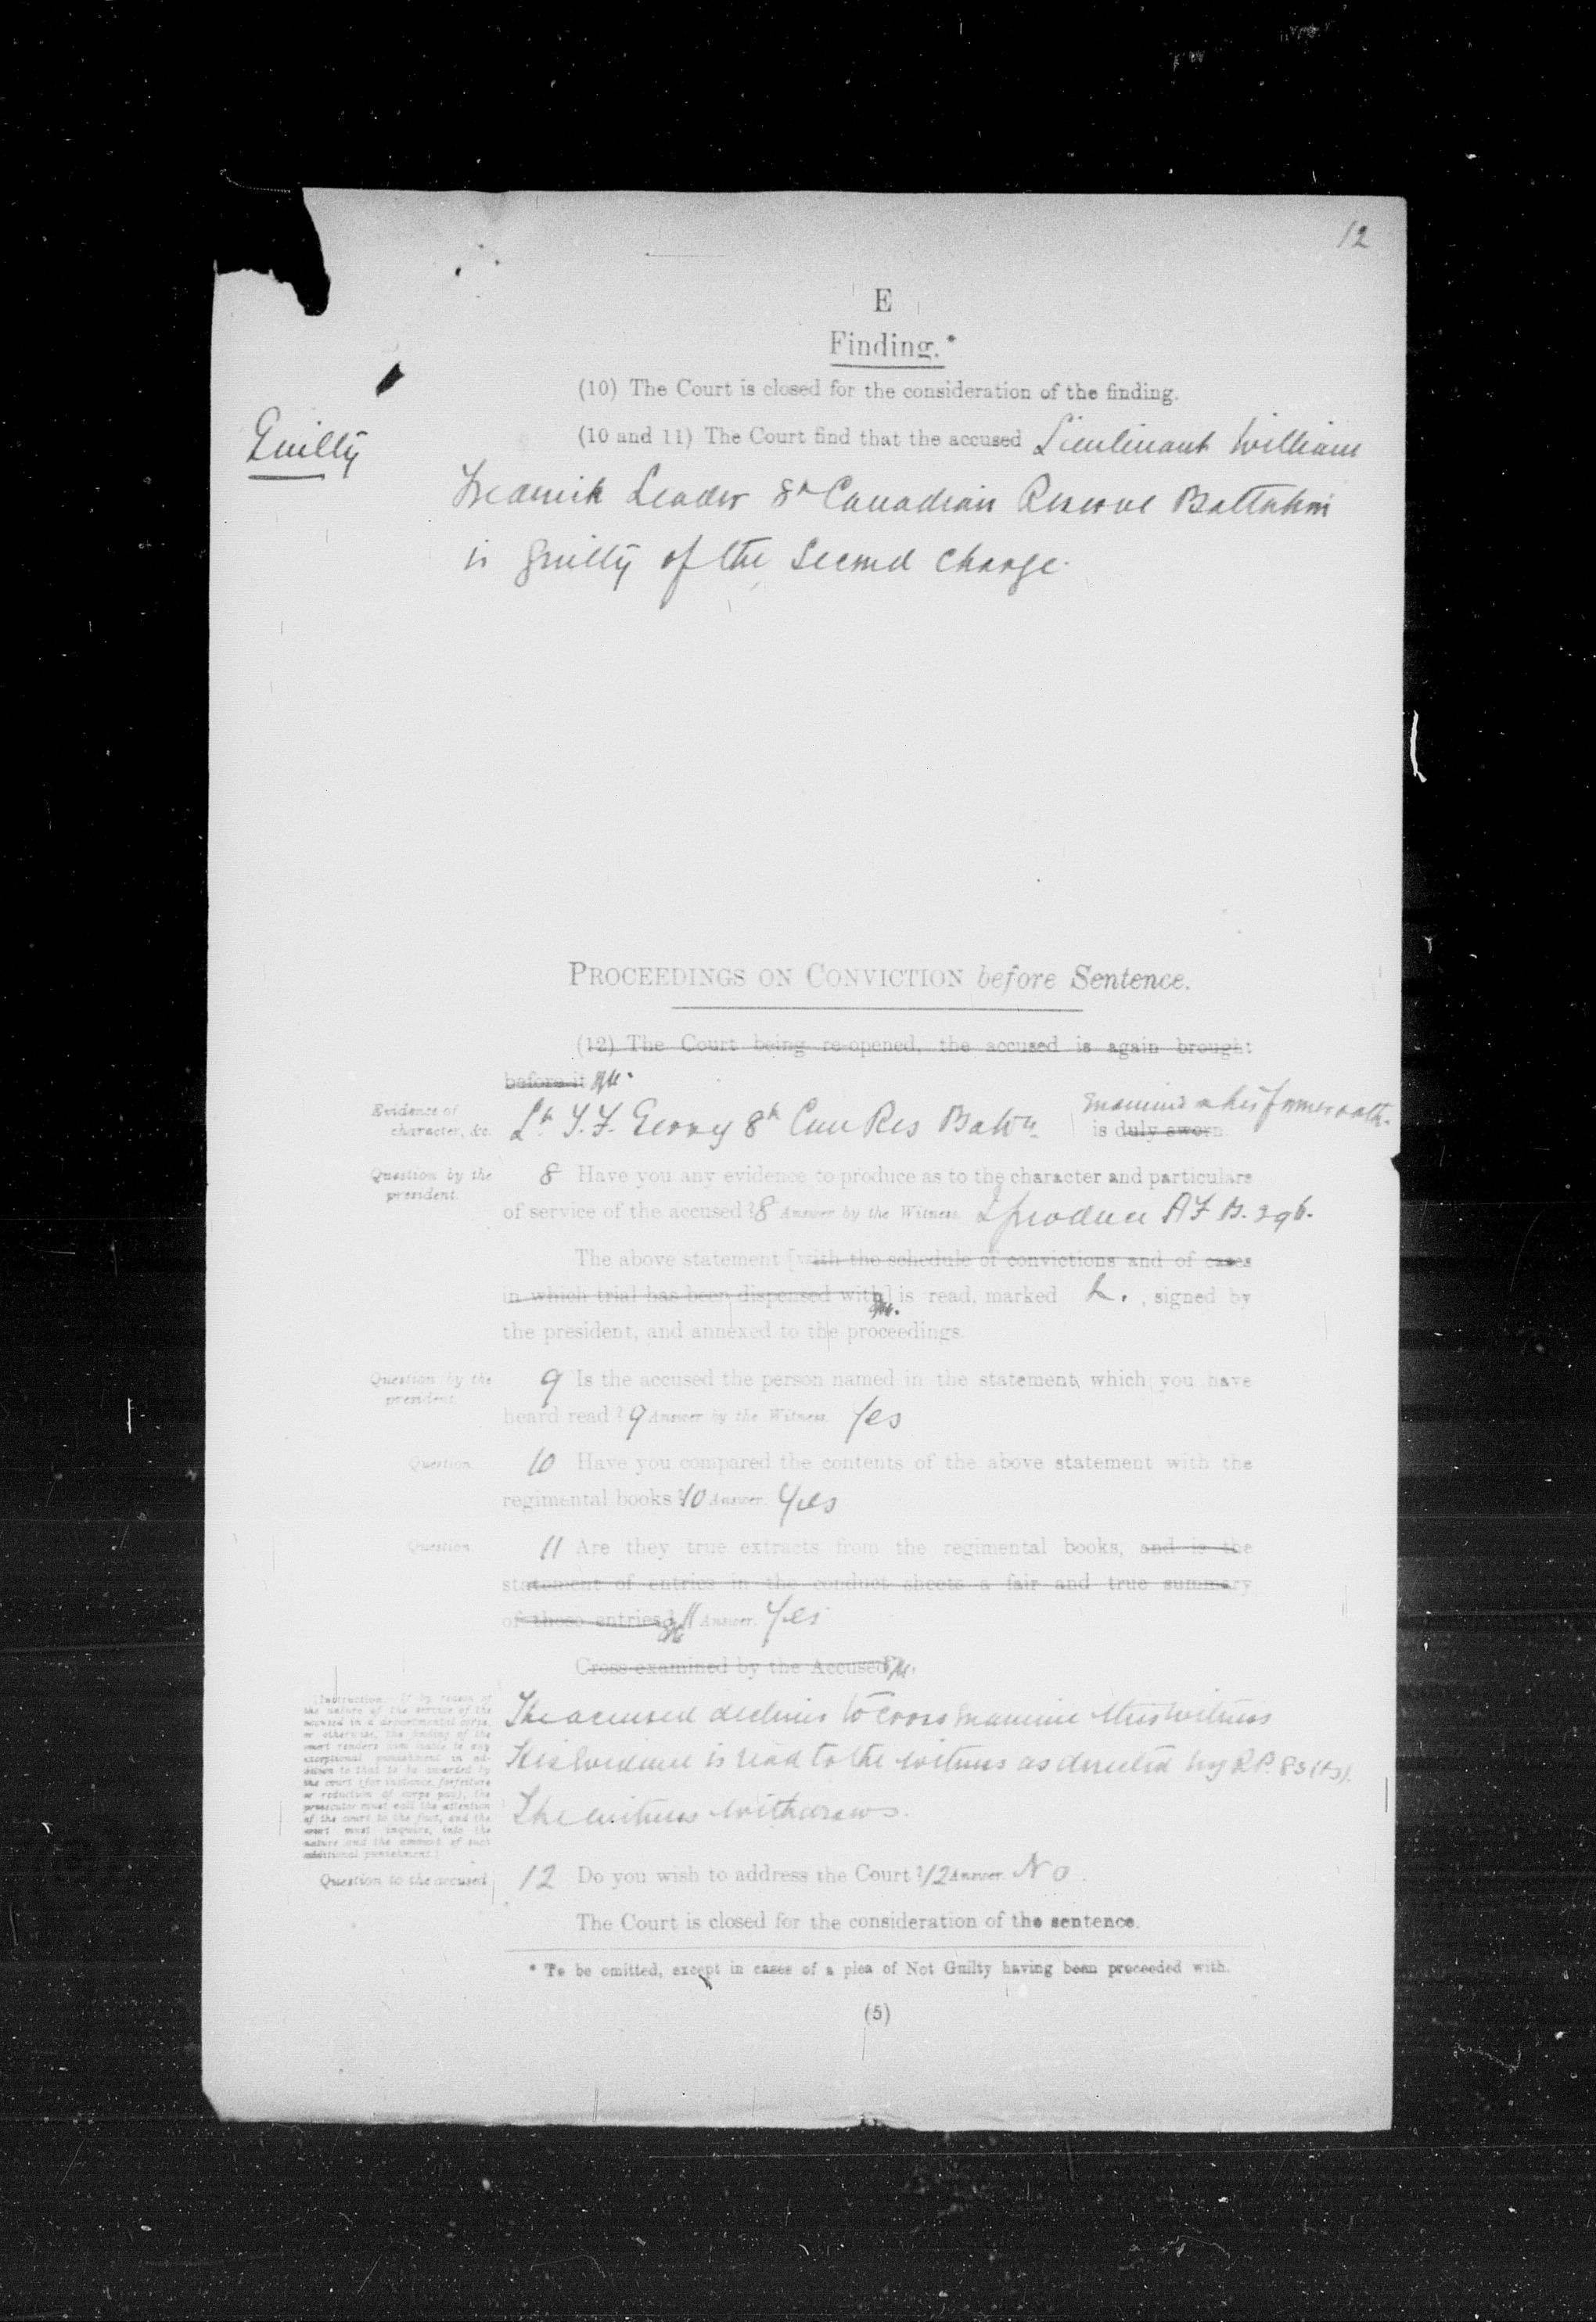 12
E
Finding.*
(10) The Court is closed for the consideration of the finding.
Guilty
(10 and 11) The Court find that the accused Lieutenant William
Frederick Leader 8th Canadian Reserve Battalion
is guilty of the second charge.
PROCEEDINGS ON CONVICTION before Sentence.
(12) The Court being re-opened, the accused is again brought
before it
Evidence of
character, &c.
Lt. Gerry 8th Can Res Battn
examined on his former oath.
is duly sworn.
Question by the
president.
8 Have you any evidence to produce as to the character and particulars
of service of the accused? 8 Answer by the Witness. I produce A F B. 296.
The above statement [with the schedule of convictions and of cases
in which trial has been dispensed with] is read, marked L. , signed by
the president, and annexed to the proceedings.
Question by the
president.
9 Is the accused the person named in the statement which you have
heard read? 9 Answer by the Witness. Yes
Question.
10 Have you compared the contents of the above statement with the
regimental books? 10 Answer. Yes
Question.
11 Are they true extracts from the regimental books, and is the
statement of entries in the conduct sheets a fair and true summary
of those entries? 11 Answer. Yes
Cross-examined by the Accused.
[Instruction. If by reason of
the nature of the service of the
accused in a departmental corps,
or otherwise, the finding of the
court renders him liable to any
exceptional punishment in ad-
dition to that to be awarded by
the court (for instance, forfeiture
or reduction of corps pay), the
prosecutor must call the attention
of the court to the fact, and the
court must inquire, into the
nature and the amount of such
additional punishment.]
The accused declines to cross examine this witness
His evidence is read to the witness as directed by R.P. 83 (B).
The witness withdraws.
Question to the accused
12 Do you wish to address the Court? 12 Answer. No.
The Court is closed for the consideration of the sentence.
* To be omitted, except in cases of a plea of Not Guilty having been proceeded with.
(5)